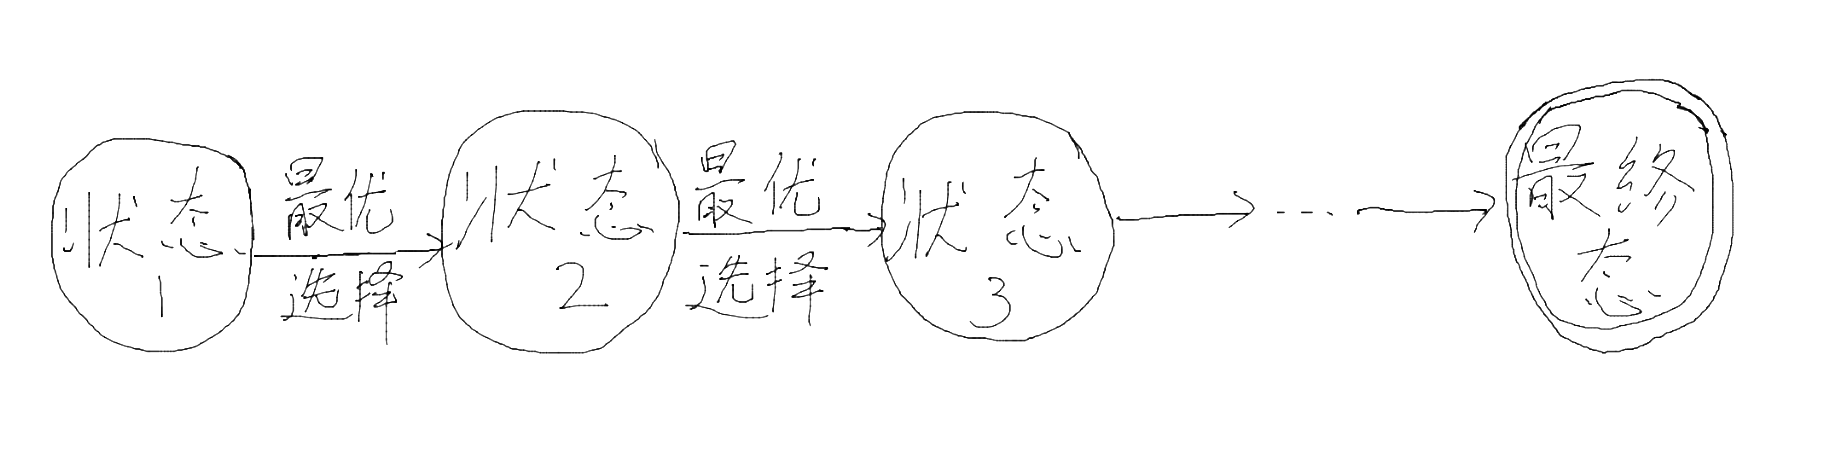 状态
1
最优
选择
状态
2
最优
选择
状态
3
....
最终
态